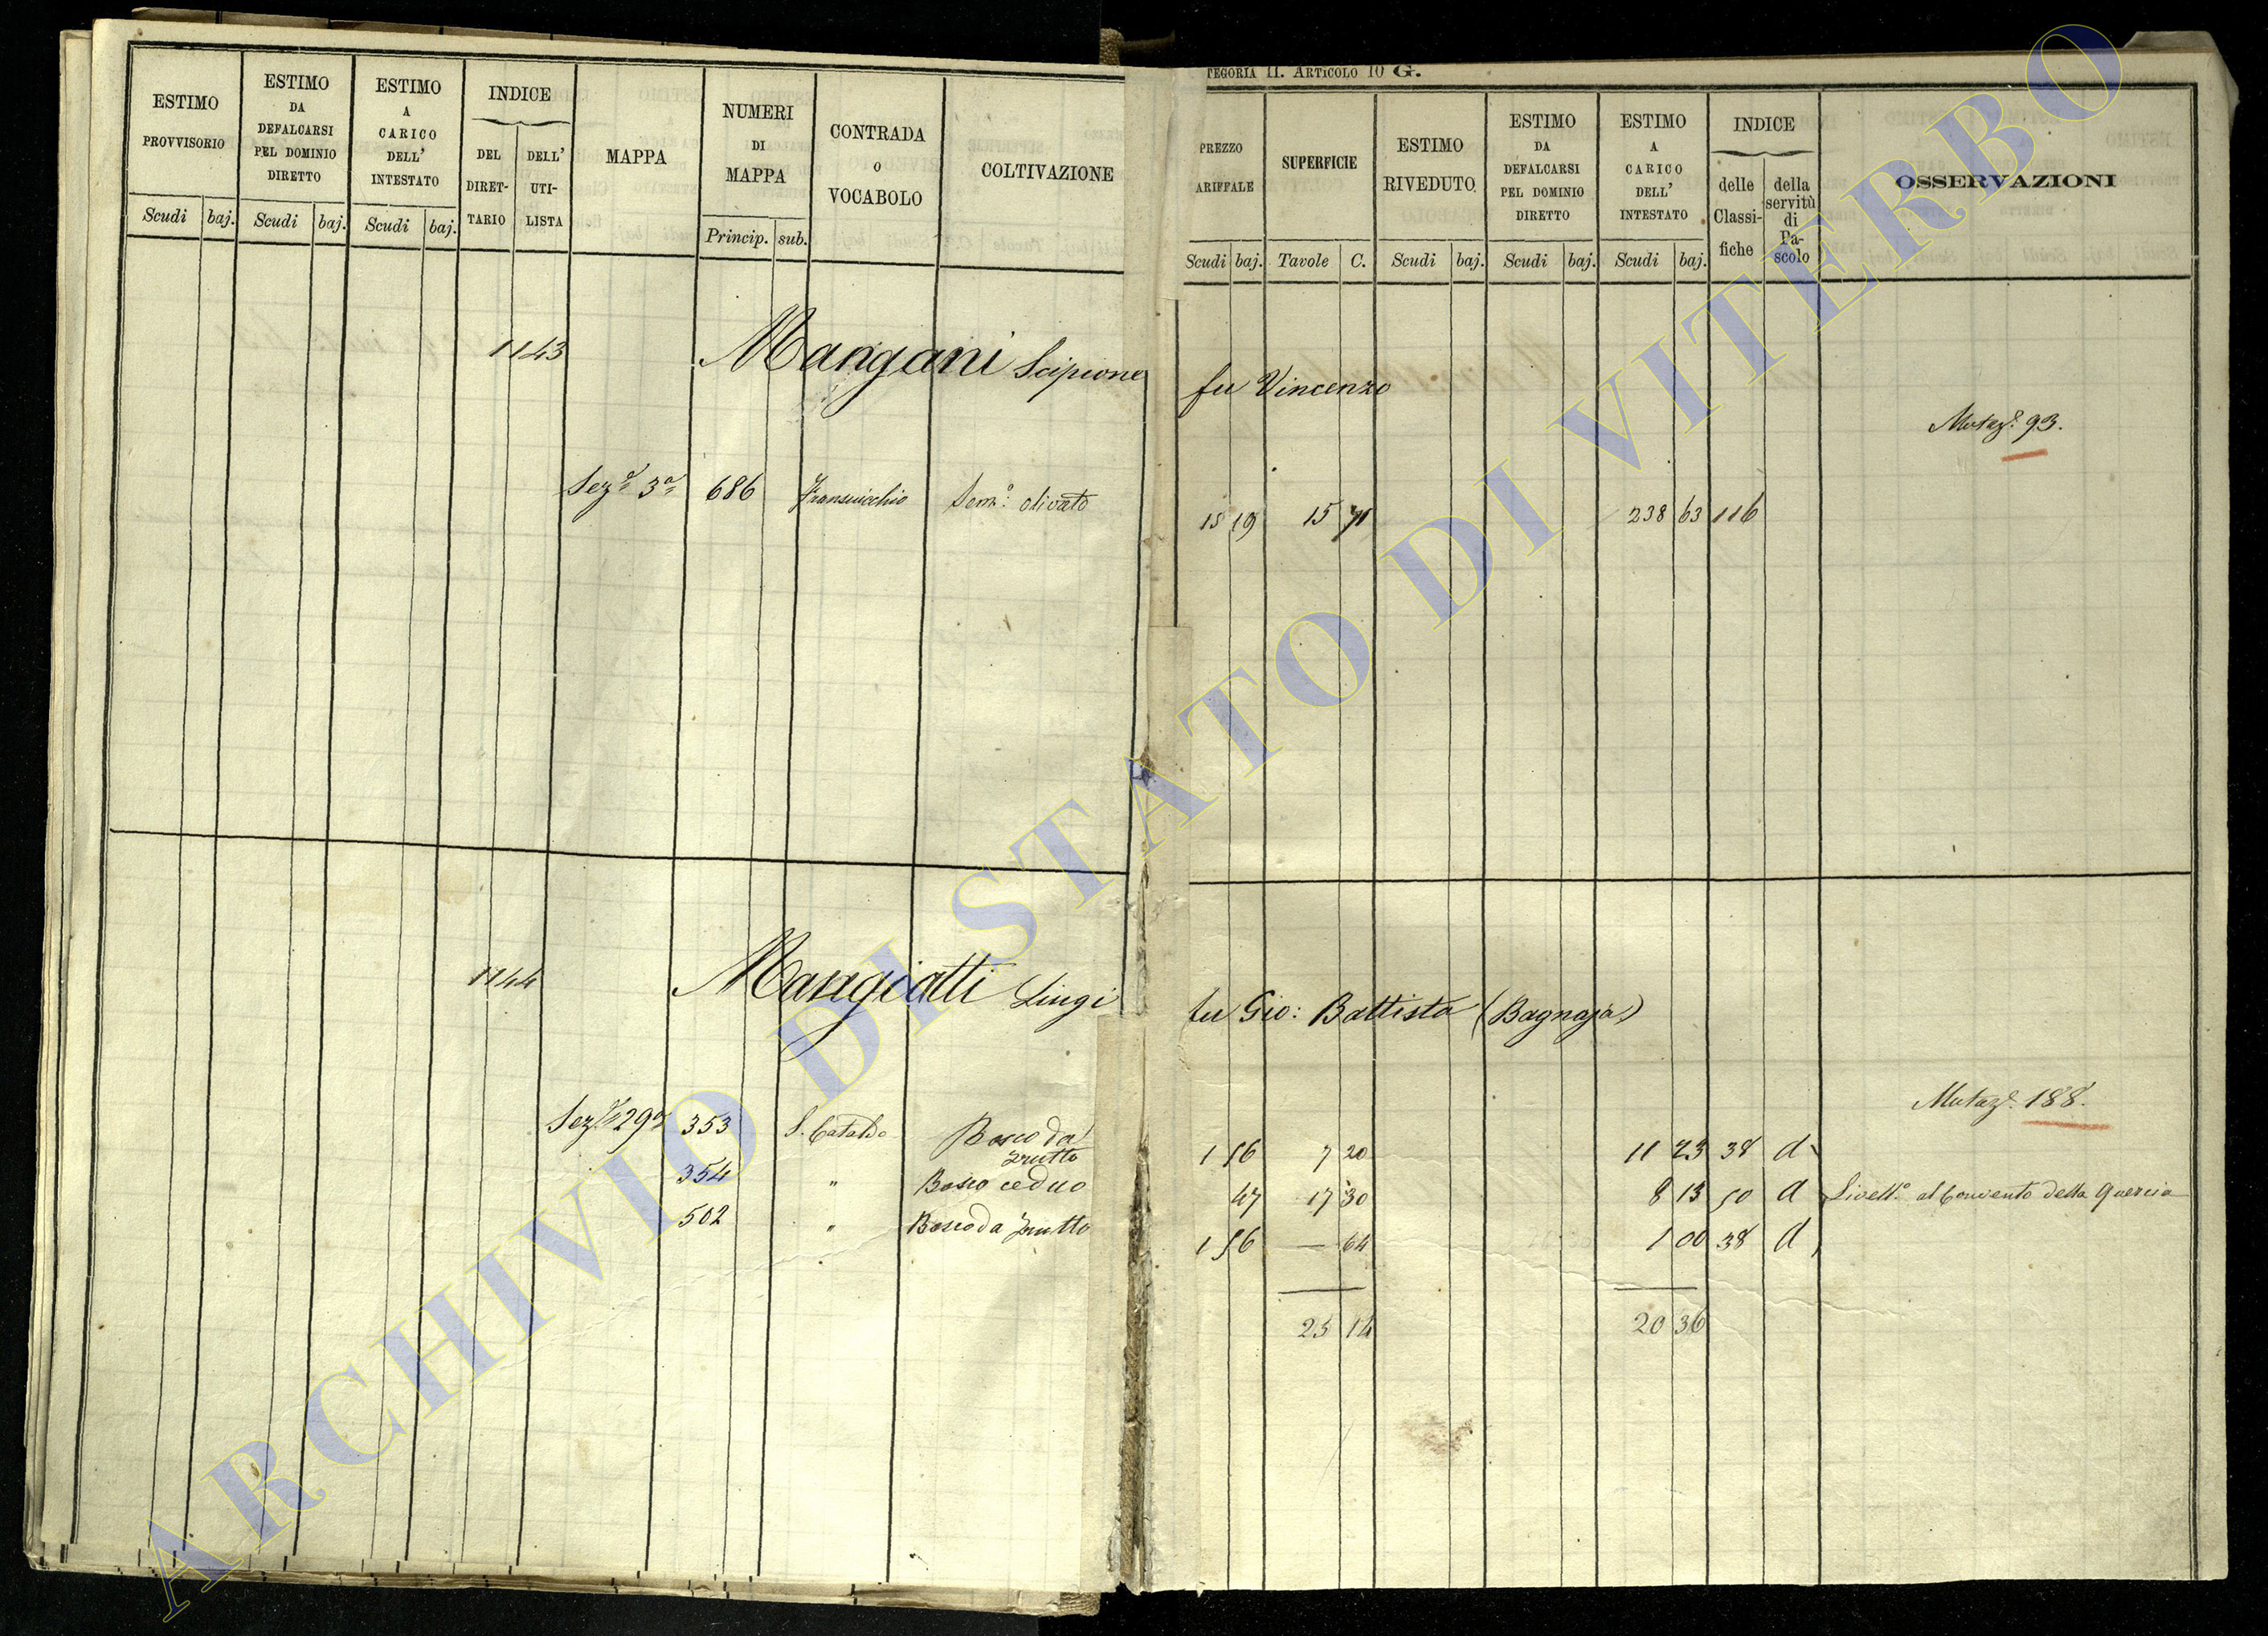 TEGORIA II. ARTICOLO 10 G.
ESTIMO PROVVISORIO
Scudi baj.
ESTIMO DA DEFALCARSI PEL DOMINIO DIRETTO
Scudi baj.
ESTIMO A CARICO DELL' INTESTATO
Scudi baj.
INDICE
DEL DIRET-TARIO
DELL' UTI-LISTA
MAPPA
NUMERI DI MAPPA
Princip. sub.
CONTRADA o VOCABOLO
COLTIVAZIONE
PREZZO ARIFFALE
Scudi baj.
SUPERFICIE
Tavole C.
ESTIMO RIVEDUTO
Scudi baj.
ESTIMO DA DEFALCARSI PEL DOMINIO DIRETTO
Scudi baj.
ESTIMO A CARICO DELL' INTESTATO
Scudi baj.
INDICE
delle Classi-fiche
della servitù di Pa-scolo
OSSERVAZIONI
1143 Mangani Scipione fu Vincenzo
Mutaz.e 93.
Sez.e 3a 686 Sem.o olivato 15 19 15 71 238 63 116
1144 Mangiatti Luigi fu Gio: Battista (Bagnaja)
Mutaz.e 188.
Sez.e 29a 353 S. Cataldo Bosco da frutto 1 56 7 20 11 23 38 d
354 " Bosco ceduo 47 17 30 8 13 50 d Livell.o al Convento della Quercia
502 " Bosco da frutto 1 56 — 64 1 00 38 d
25 14 20 36
ARCHIVIO DI STATO DI VITERBO